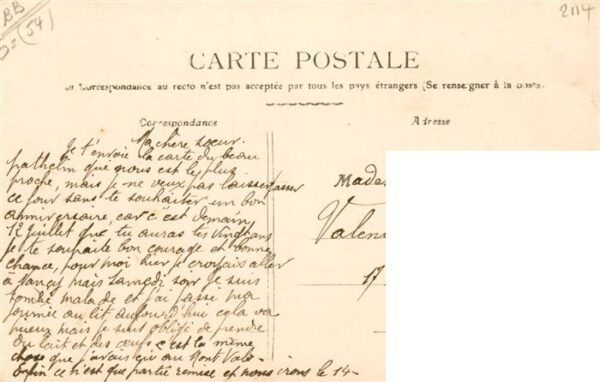 BB
D=(54)
2114
CARTE POSTALE
Correspondance au recto n'est pas acceptée par tous les pays étrangers (Se renseigner à la Poste)
Correspondance
Adresse
Ma chère sœur.
Je t'envoie la carte du beau
que nous est le plus
proche, mais je ne veux pas laisser passer
ce jour sans te souhaiter un bon
anniversaire, car c'est demain
12 juillet que tu auras tes vingt ans
je te souhaite bon courage et bonne
chance, pour moi hier je croyais aller
à Nancy mais Samedi soir je suis
tombé malade et j'ai passé ma
journée au lit aujourd'hui cela va
mieux mais je suis obligé de prendre
du lait et des œufs c'est la même
chose que j'avais au Mont Valé-
Enfin ce n'est que partie remise et nous irons le 14-
Mada
Valen
17